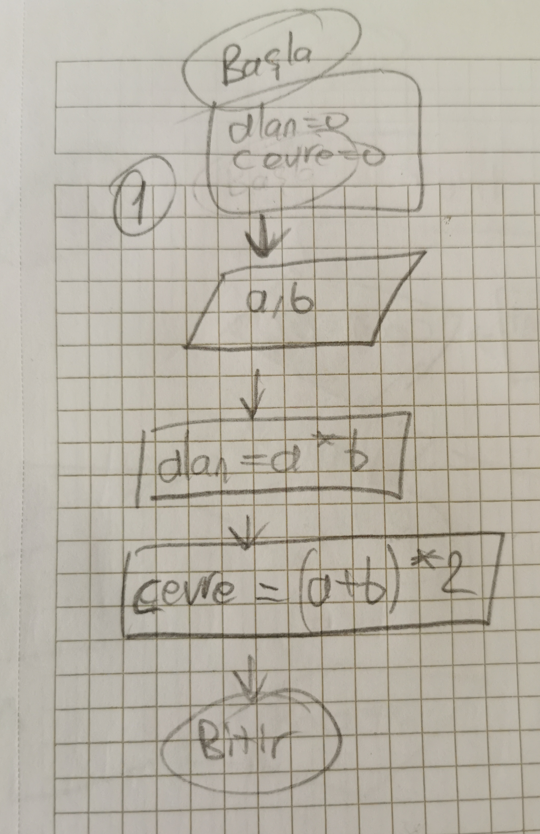 Başla
alan=0
cevre=0
1
a,b
alan=a*b
çevre=(a+b)*2
Bitir